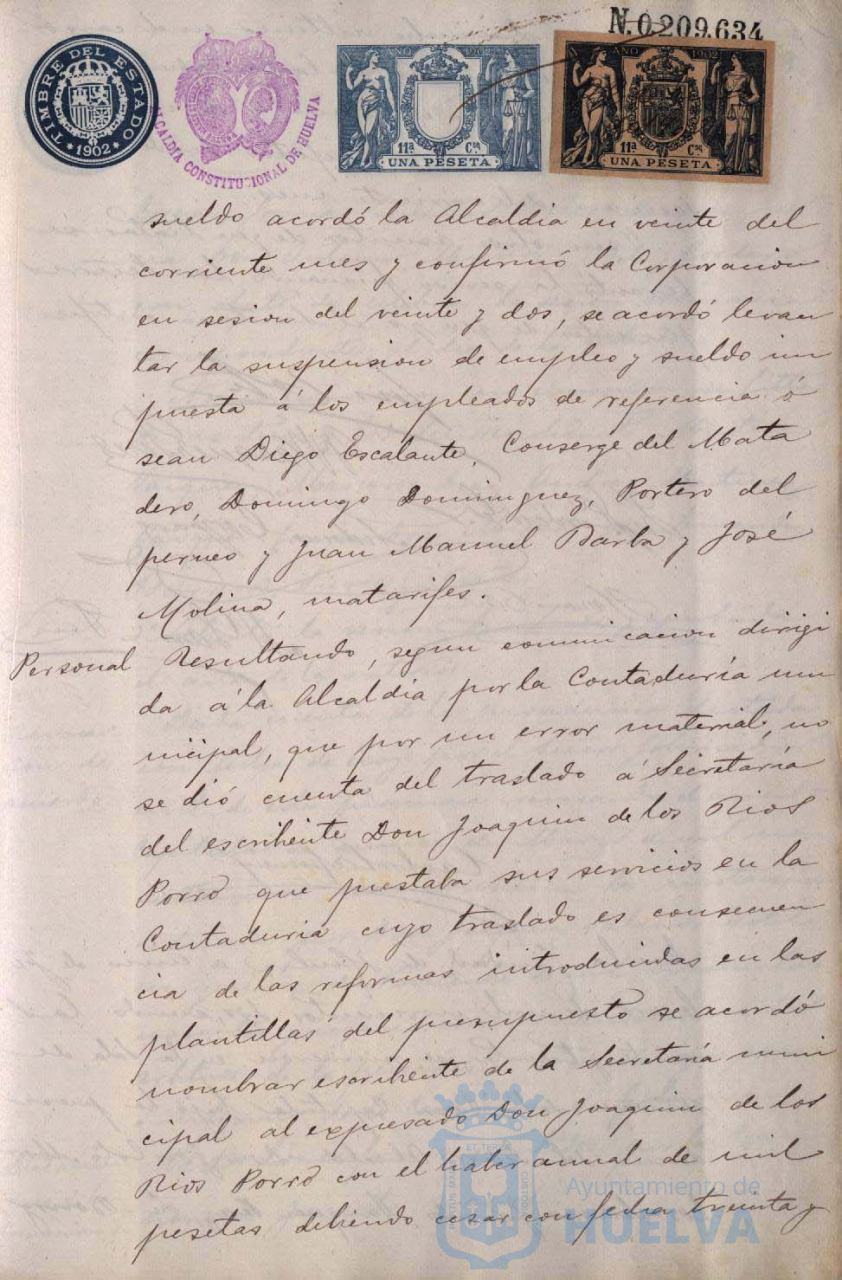 N.0209,634
TIMBRE DEL ESTADO
*1902*
ALCALDIA CONSTITUCIONAL DE HUELVA
AÑO 1902
11ª Cª
UNA PESETA
AÑO 1902
11ª Cª
UNA PESETA
sueldo acordó la Alcaldia en veinte del
corriente mes y confirmó la Corporacion
en sesion del veinte y dos, se acordó levan
tar la suspension de empleo y sueldo im
puesta á los empleados de referencia ó
sean Diego Escalante, Conserge del Mata
dero, Domingo Dominguez, Portero del
perneo y Juan Manuel Barba y José
Molina, matarifes.
Personal Resultando, segun comunicacion dirigi
da á la Alcaldia por la Contaduría mu
nicipal, que por un error material, no
se dió cuenta del traslado á Secretaría
del escribiente Don Joaquin de los Rios
Porro que prestaba sus servicios en la
Contaduria cuyo traslado es consecuen
cia de las reformas introducidas en las
plantillas del presupuesto se acordó
nombrar escribiente de la Secretaría muni
cipal al expresado Don Joaquin de los
Rios Porro con el haber annal de mil
pesetas debiendo cesar con fecha treinta y
Ayuntamiento de
HUELVA